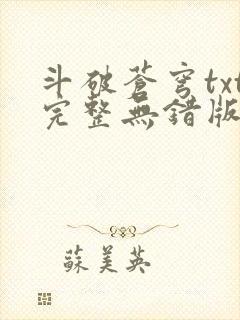 斗破蒼穹txt
完整無錯版
蘇美英